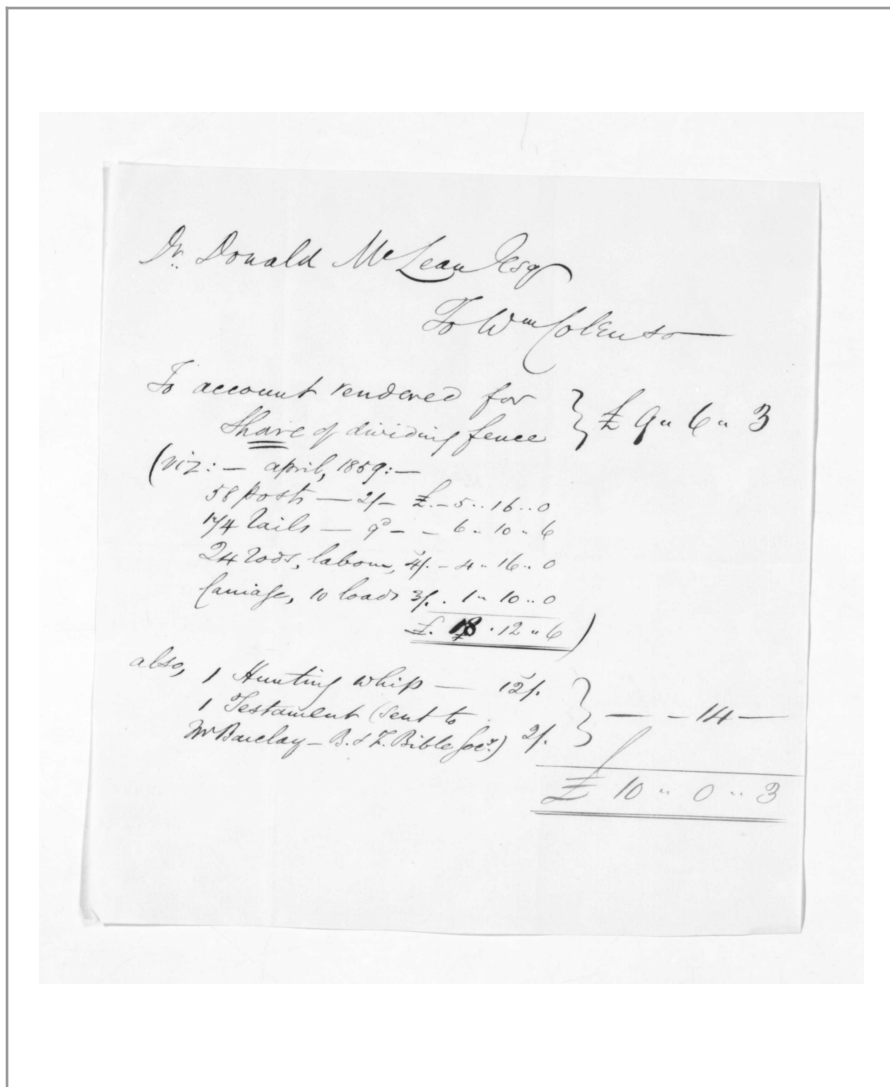 Dr. Donald McLean Esq
To Wm Colenso
To account rendered for } £ 9 " 6 " 3
Share of dividing fence
(viz: — april, 1859: —
58 posts — 2/- £ - 5 .. 16 .. 0
174 rails — 9d - - 6 .. 10 .. 6
24 rods, labour, 4/. - 4 .. 16 .. 0
Carriage, 10 loads 3/. . 1 .. 10 .. 0
£. 18 . 12 .. 6 )
also, 1 Hunting whip — 12/. } — - 14 —
1 Testament (sent to
Mr Barclay — B. & F. Bible Socy.) 2/.
£ 10 .. 0 .. 3